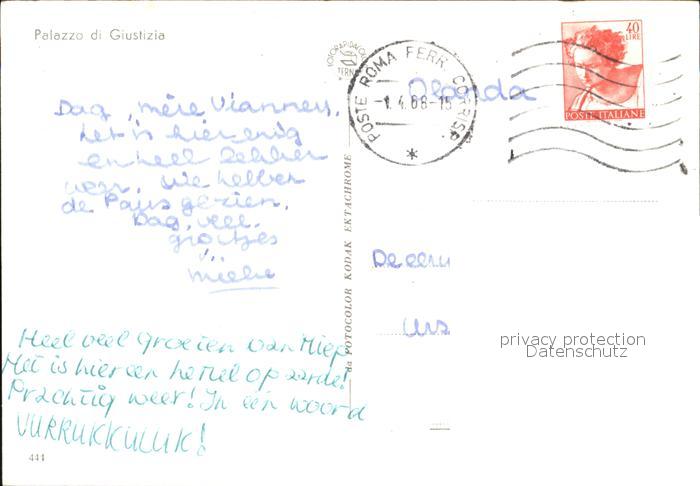 Palazzo di Giustizia
FOTORAPIDACOLOR
TERNI
POSTE ROMA FERR. CORRISP.
-1.4.68-15
*
40
LIRE
POSTE ITALIANE
Olanda
Dag, mère Vianney,
het is hier enig
en heel lekker
weer, we hebben
de Paus gezien.
Dag, veel
groetjes
v.
Mieke
De eerw
Urs
da FOTOCOLOR KODAK EKTACHROME
Heel veel groeten van Miep
Het is hier een hemel op aarde!
Prachtig weer! In een woord
VURRUKKULUK!
privacy protection
Datenschutz
444